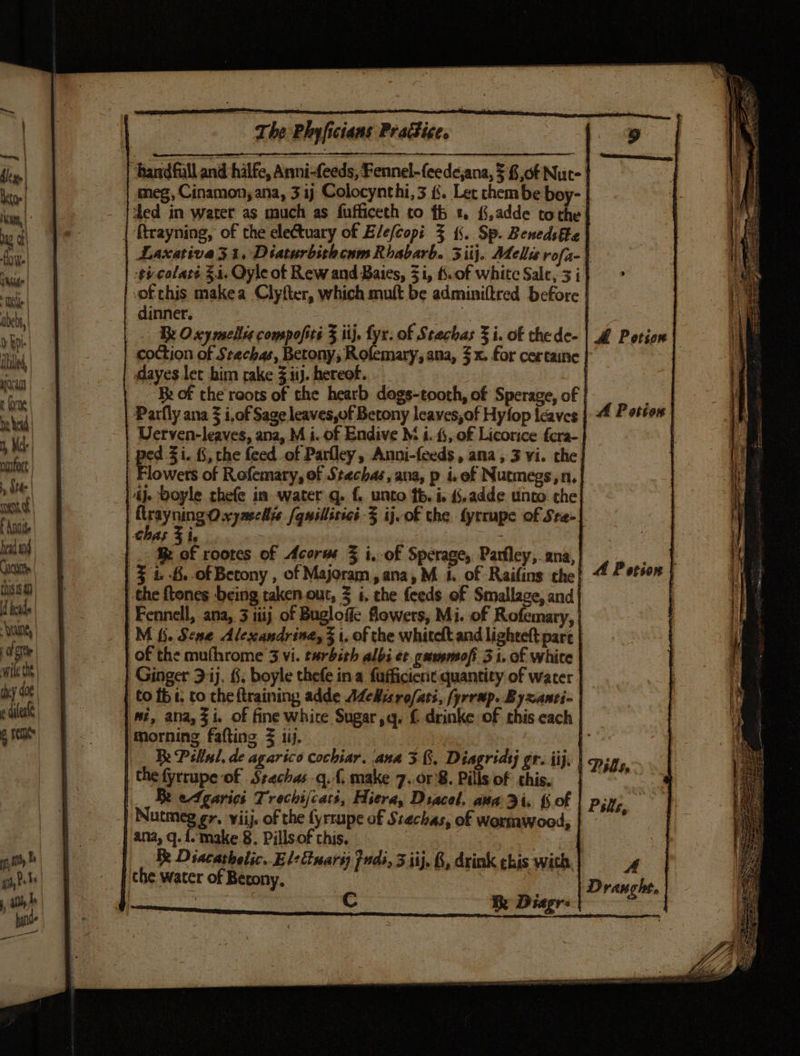 The Phyſicians Practice.
9
handfull and halfe, Anni-ſeeds, Fennel-ſeede, ana, ℥ ß, of Nut-
meg, Cinamon, ana, ʒ ij Colocynthi, ʒ ß. Let them be boy-
led in water as much as ſufficeth to ℔ 1. ß, adde to the
ſtrayning, of the electuary of Eleſcopi ℥ ß. Sp. Benedictæ
Laxativa ʒ 1. Diaturbith cum Rhabarb. ʒ iij. Mellis roſa-
ti colati ℥ i. Oyle of Rew and Baies, ℥ i, ß. of white Salt, ʒ i
of this make a Clyſter, which muſt be adminiſtred before
dinner.
℞ Oxymellis compoſiti ℥ iij. ſyr. of Stechas ℥ i. of the de-
A Potion
coction of Stechas, Betony, Roſemary, ana, ℥ x. for certaine
dayes let him take ℥ iij. hereof.
℞ of the roots of the hearb dogs-tooth, of Sperage, of
Parſly ana ℥ i. of Sage leaves, of Betony leaves, of Hyſop leaves
A Potion
Verven-leaves, ana, M i. of Endive M i. ß, of Licorice ſcra-
ped ℥ i. ß, the ſeed of Parſley, Anni-ſeeds, ana, ʒ vi. the
Flowers of Roſemary, of Stechas, ana, p i. of Nutmegs, n.
ij. boyle theſe in water q. ſ. unto ℔. i. ß. adde unto the
ſtrayning Oxymellis ſquillitici ℥ ij. of the ſyrrupe of Ste-
chas ℥ i.
℞ of rootes of Acorus ℥ i. of Sperage, Parſley, ana,
℥ i. ß. of Betony, of Majoram, ana, M i. of Raiſins the
A Potion
the ſtones being taken out, ℥ i. the ſeeds of Smallage, and
Fennell, ana, ʒ iiij of Bugloſſe flowers, M i. of Roſemary,
M ß. Sene Alexandrinæ, ℥ i. of the whiteſt and lighteſt part
of the muſhrome ʒ vi. turbith albi et gummoſi ʒ i. of white
Ginger ℈ ij. ß. boyle theſe in a ſufficient quantity of water
to ℔ i. to the ſtraining adde Mellis roſati, ſyrrup. Byzanti-
ni, ana, ℥ i. of fine white Sugar, q. ſ. drinke of this each
morning faſting ℥ iij.
℞ Pillul. de agarico cochiar. ana ʒ ß. Diagridij gr. iij.
Pills,
the ſyrrupe of Stechas q. ſ. make 7. or 8. Pills of this.
℞ Agarici Trochiſcati, Hiera, Diacol. ana ℈ i. ß of
Pills,
Nutmeg gr. viij. of the ſyrrupe of Stechas, of wormwood,
ana, q. ſ. make 8. Pills of this.
℞ Diacatholic. Electuarij Judi, ʒ iij. ß, drink this with
A
the water of Betony.
Draught.
C
℞ Diagr-